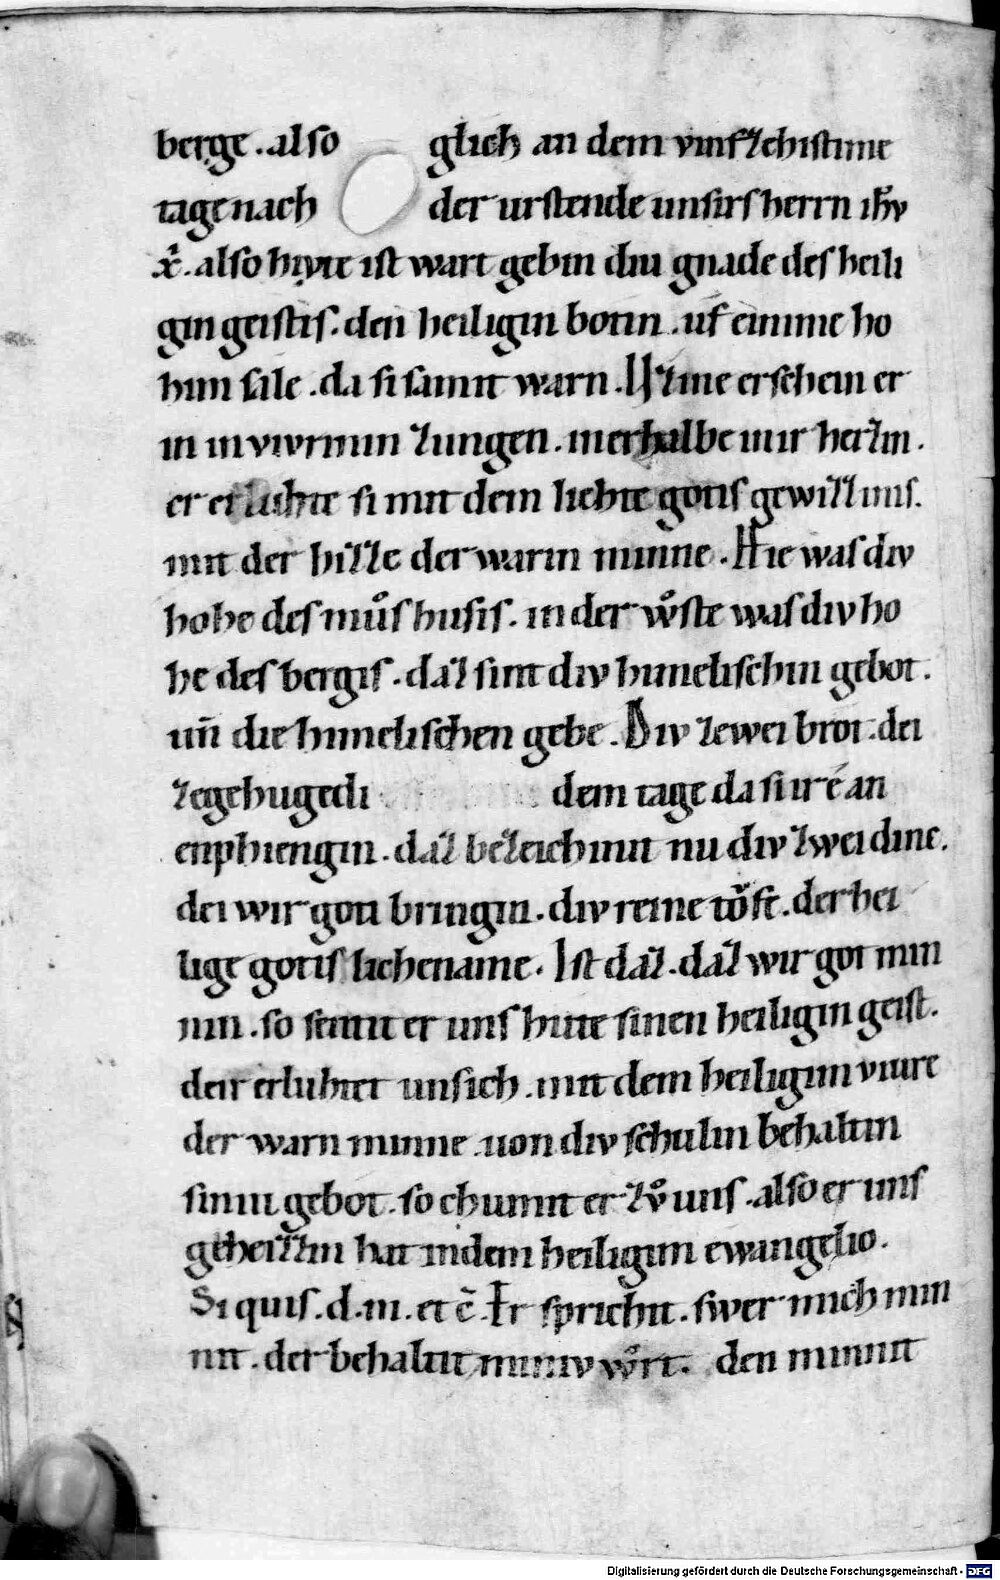 berge. also glich an dem vinfzchistime
tage nach der urstende unsirs herrn ih̄v
x̄. also hivte ist wart gebin diu gnade des heili
gin geistis. den heiligin botin. uf einime ho
him sale. da si samit warn. Uzine erschein er
in in viwrinin zungen. inerhalbe inir herzin.
er erluhte si mit dem liehte gotis gewizzinis.
mit der hizze der warin minne. Hie was div
hohe des muͦshusis. in der wͦste was div ho
he des bergis. daz sint div himelischin gebot.
un̄ die himelischen gebe. Div zewei brot. dei
zegehugedi dem tage da si ir ē an
enphiengin. daz bezeichint nu div zwei dine.
dei wir goti bringin. div reine tǒfe. der hei
lige gotis lichename. Ist daz. daz wir got min
nin. so sentit er uns hiute sinen heiligin geist.
deir erluhtet unsich. mit dem heiligin viure
der warn minne. uon div schulin behaltin
siniu gebot. so chumit er zuͦ uns. also er uns
geheizzin hat in dem heiligin ewangelio.
Si quis. d. m. et c̄. Er sprichit. swer mich min
nit. der behaltit miniv wͦrt. den minnit
Digitalisierung gefördert durch die Deutsche Forschungsgemeinschaft - DFG